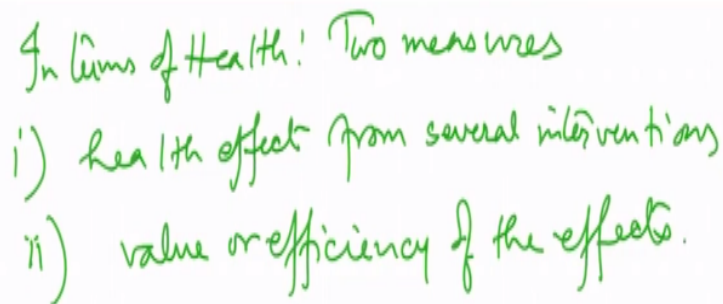 In terms of Health! Two measures
i) health effect from several interventions
ii) value or efficiency of the effects.